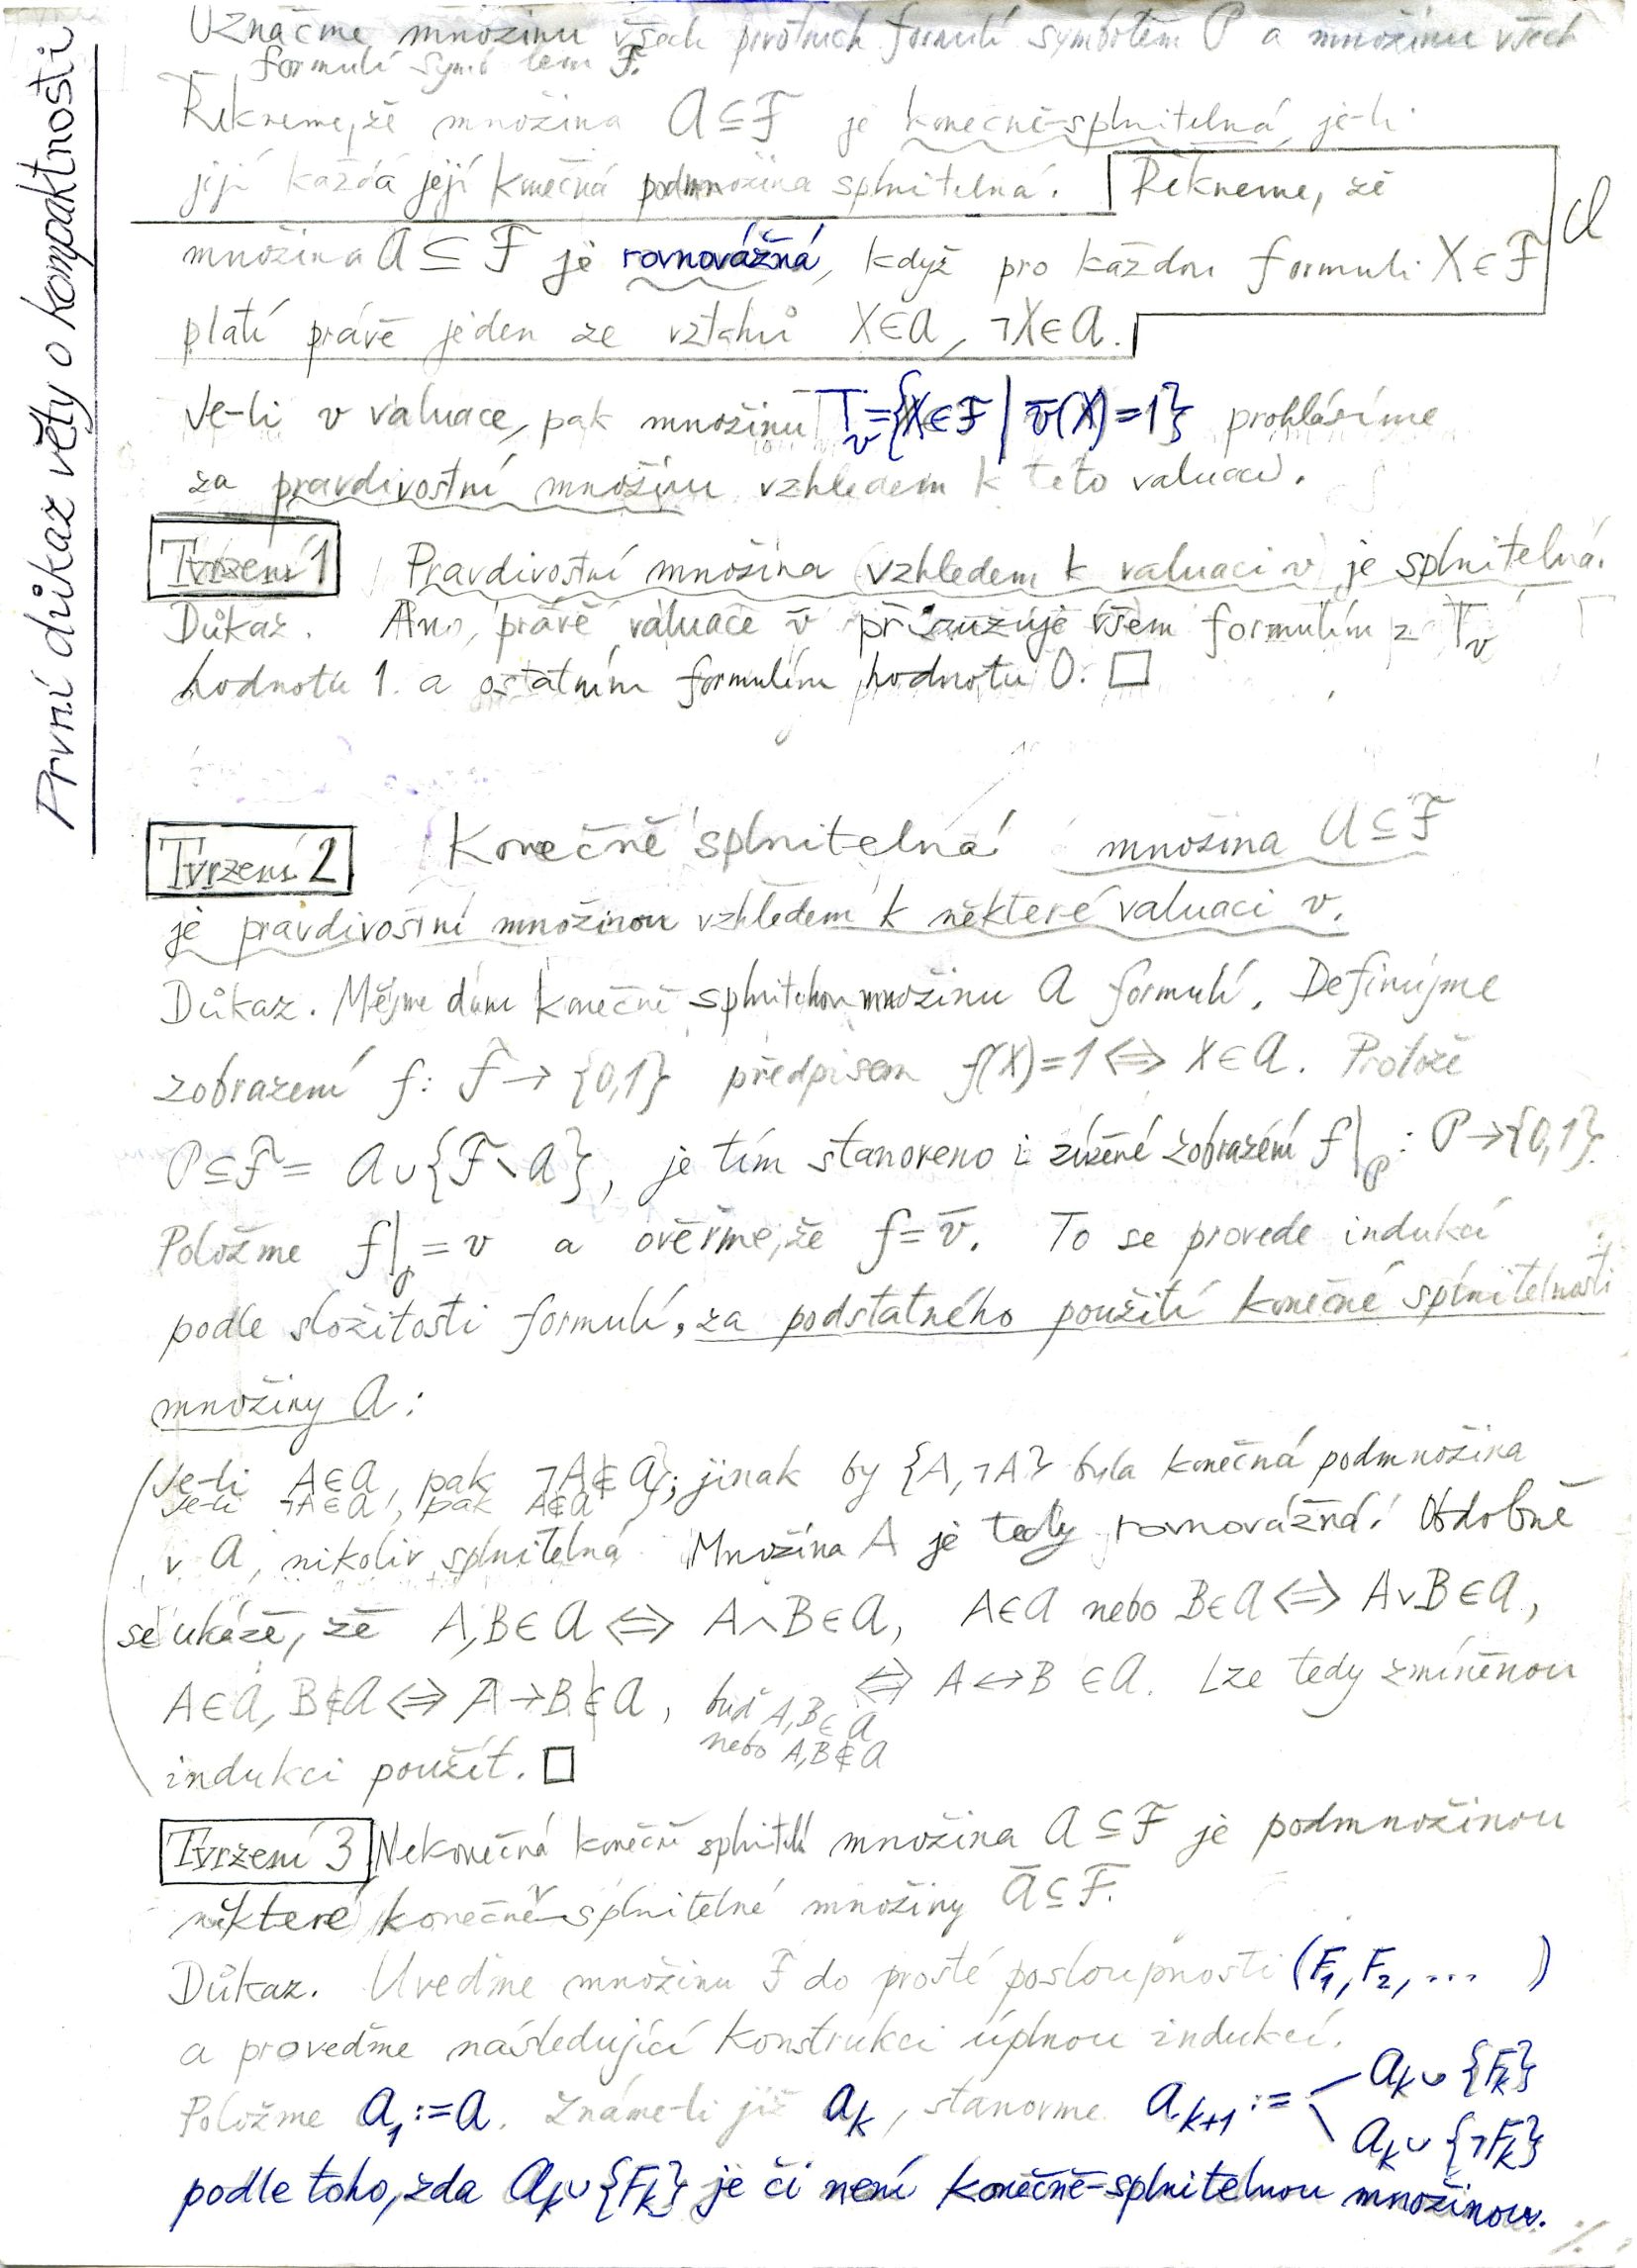 První důkaz věty o kompaktnosti
Označme množinu všech prvotních formulí symbolem P a množinu všech
formulí symbolem F.
Řekneme, že množina A ⊆ F je konečně-splnitelná, je-li
její každá její konečná podmnožina splnitelná. Řekneme, že
množina A ⊆ F je rovnovážná, když pro každou formuli X ∈ F
platí právě jeden ze vztahů X ∈ A, ¬X ∈ A.
Je-li v valuace, pak množinu T_v = {X ∈ F | v̄(X) = 1} prohlásíme
za pravdivostní množinu vzhledem k této valuaci.
Tvrzení 1 Pravdivostní množina (vzhledem k valuaci v) je splnitelná.
Důkaz. Ano, právě valuace v̄ přisuzuje všem formulím z T_v
hodnotu 1. a ostatním formulím hodnotu 0. □
Tvrzení 2 Konečně splnitelná množina A ⊆ F
je pravdivostní množinou vzhledem k některé valuaci v.
Důkaz. Mějme dánu konečně splnitelnou množinu A formulí. Definujme
zobrazení f: F → {0,1} předpisem f(X)=1 ⇔ X ∈ A. Protože
P ⊆ F = A ∪ {F ∖ A}, je tím stanoveno i zúžené zobrazení f|_P : P → {0,1}.
Položme f|_P = v a ověřme, že f = v̄. To se provede indukcí
podle složitosti formulí, za podstatného použití konečné splnitelnosti
množiny A:
(Je-li A ∈ A, pak ¬A ∉ A}; jinak by {A, ¬A} byla konečná podmnožina
Je-li ¬A ∈ A, pak A ∉ A
v A, nikoliv splnitelná. Množina A je tedy rovnovážná. Obdobně
se ukáže, že A, B ∈ A ⇔ A ∧ B ∈ A, A ∈ A nebo B ∈ A ⇔ A ∨ B ∈ A,
A ∈ A, B ∉ A ⇔ A → B ∉ A, buď A, B ∈ A ⇔ A ↔ B ∈ A. Lze tedy zmíněnou
nebo A, B ∉ A
indukci použít. □
Tvrzení 3 Nekonečná konečně splnitel množina A ⊆ F je podmnožinou
některé konečně-splnitelné množiny Ā ⊆ F.
Důkaz. Uveďme množinu F do prosté posloupnosti (F₁, F₂, ... )
a proveďme následující konstrukci úplnou indukcí.
Položme A₁ := A. Známe-li již A_k, stanovme A_{k+1} := A_k ∪ {F_k}
A_k ∪ {¬F_k}
podle toho, zda A_k ∪ {F_k} je či není konečně-splnitelnou množinou.
./.